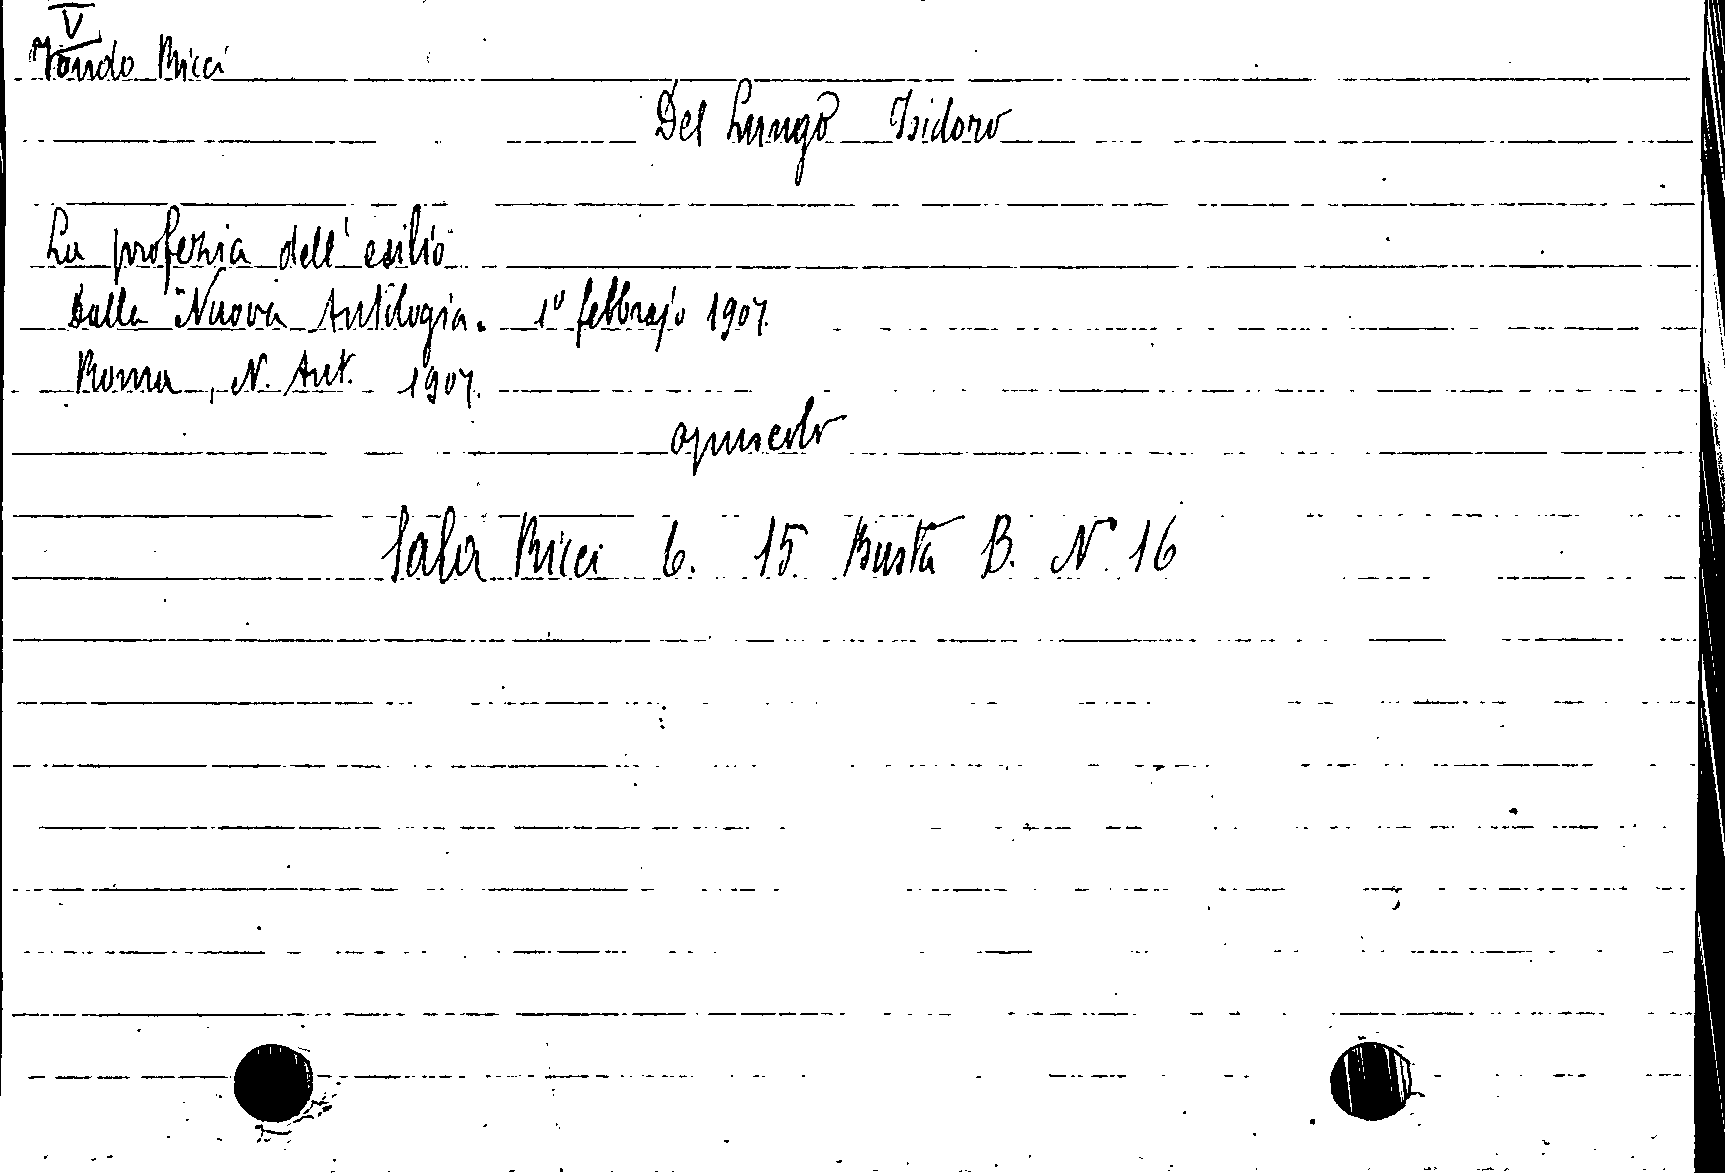 V
Fondo Ricci
Del Lungo Isidoro
La profezia dell'esilio
Dalla Nuova Antologia. 1º febbrajo 1907.
Roma, N. Ant. 1907.
opuscolo
Sala Ricci 6. 15. Busta B. Nº 16